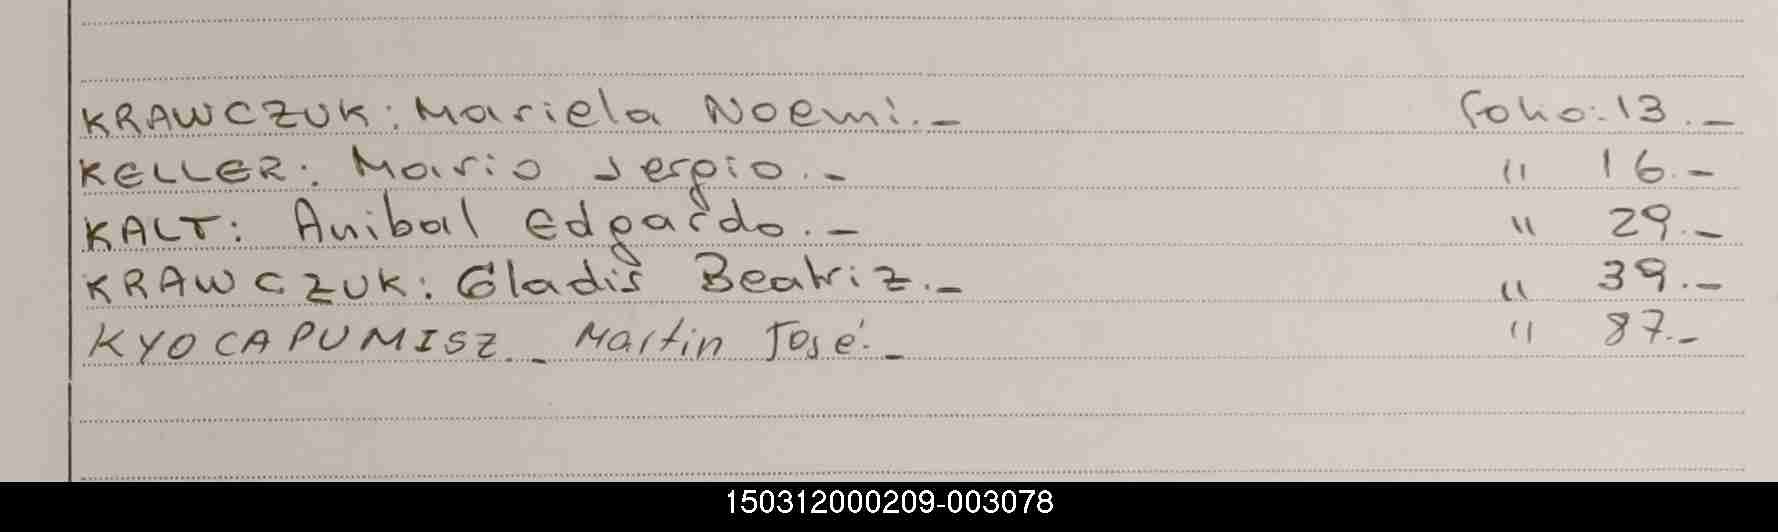 KRAWCZUK: Mariela Noemi._ Folio: 13._
KELLER: Mario Sergio._ " 16._
KALT: Anibal Edgardo._ " 29._
KRAWCZUK: Gladis Beatriz._ " 39._
KYOCAPUMISZ._ Martin José._ " 87._
150312000209-003078